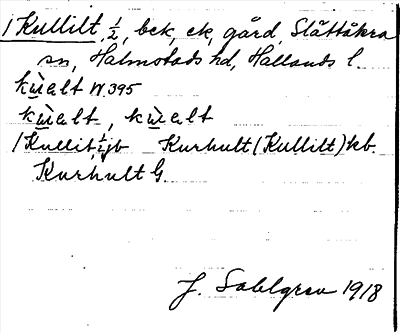 1 Kullilt, ½, bek, ek, gård Slättåkra
sn, Halmstads hd, Hallands l.
kùəlt W. 395
kùəlt, kùəlt
1 Kullit, ½ jb Kurhult (Kullilt) kb.
Kurhult G.
J. Sahlgren 1918